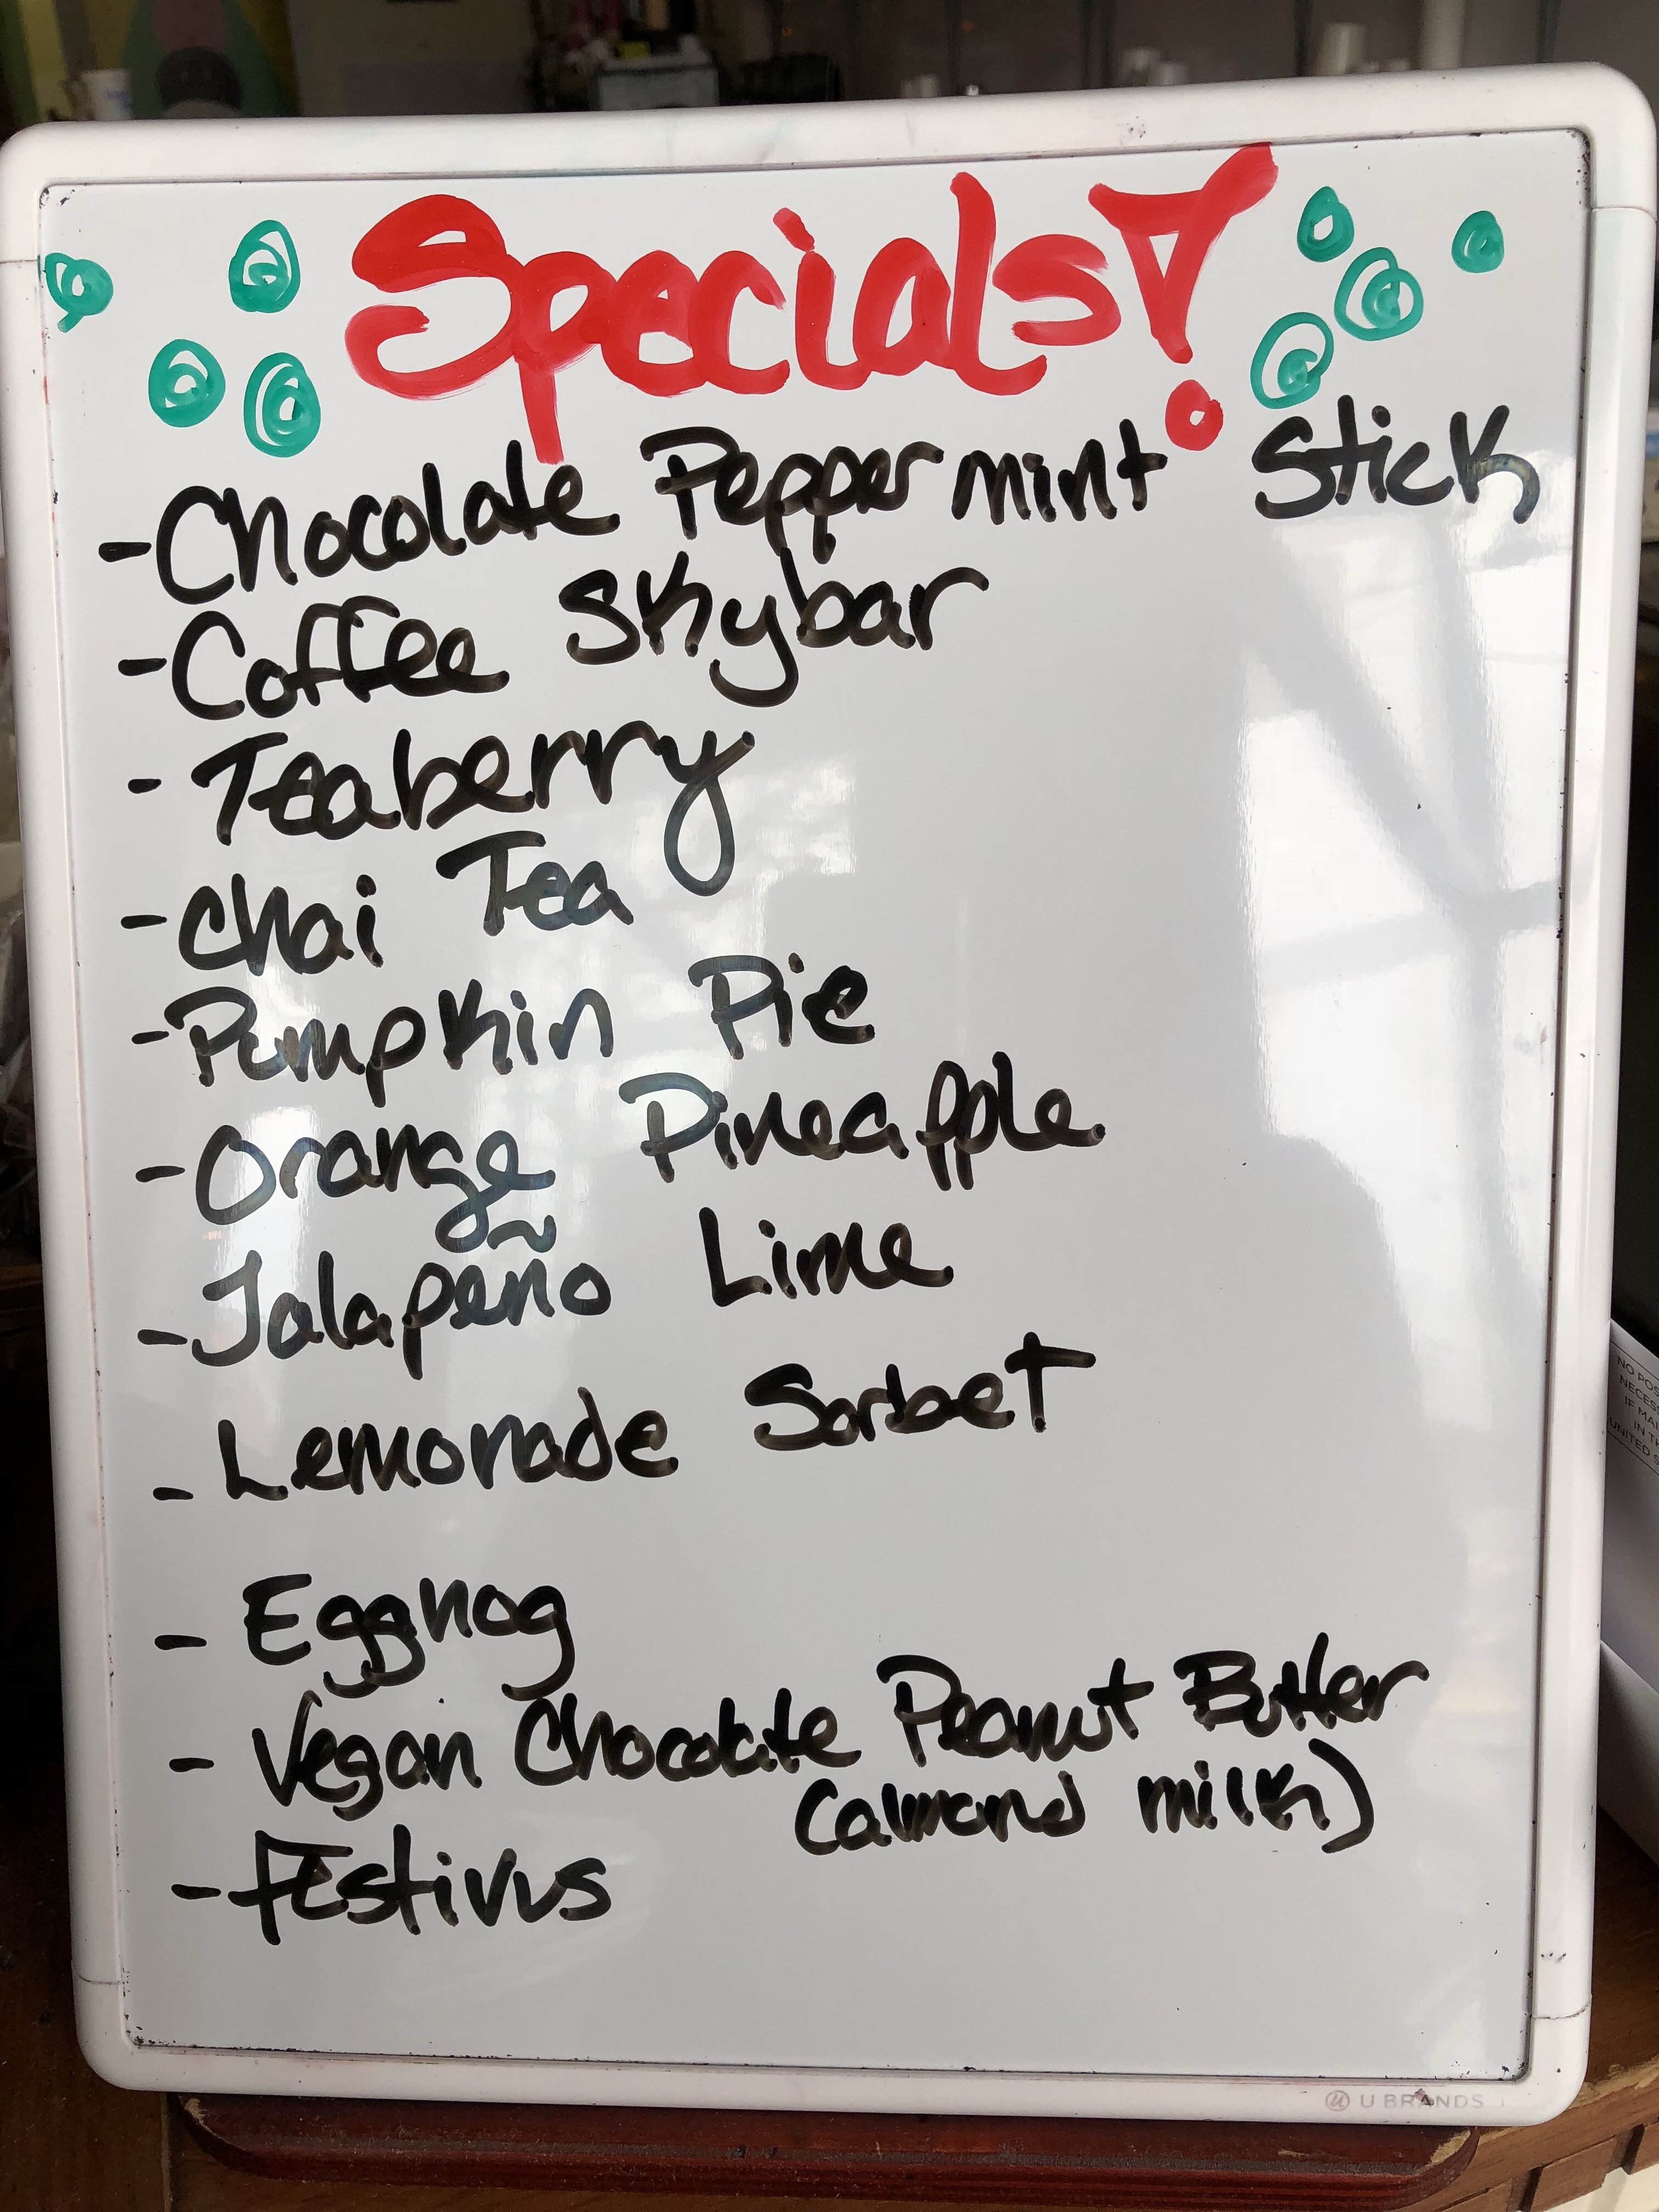 Specials!
-Chocolate Peppermint Stick
-Coffee Skybar
-Teaberry
-Chai Tea
-Pumpkin Pie
-Orange Pineapple
-Jalapeño Lime
-Lemonade Sorbet
-Eggnog
-Vegan Chocolate Peanut Butter
(almond milk)
-Festivus
U BRANDS
NO POS
NECESS
IF MAI
IN TH
UNITED S